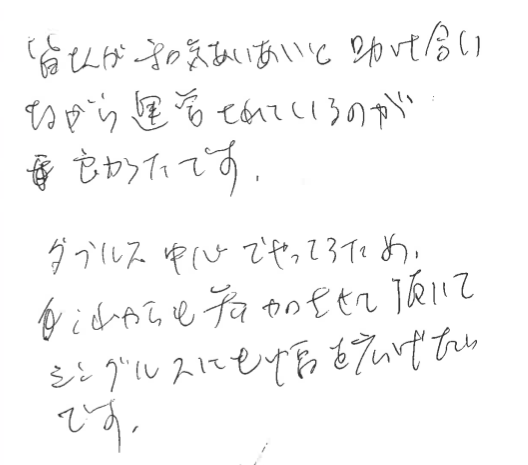 皆さんが和気あいあいと助け合い
ながら運営されているのが
良かったです。
ダブルス中心でやってるため、
これからも参加させて頂いて
シングルスにも幅を広げたい
です。